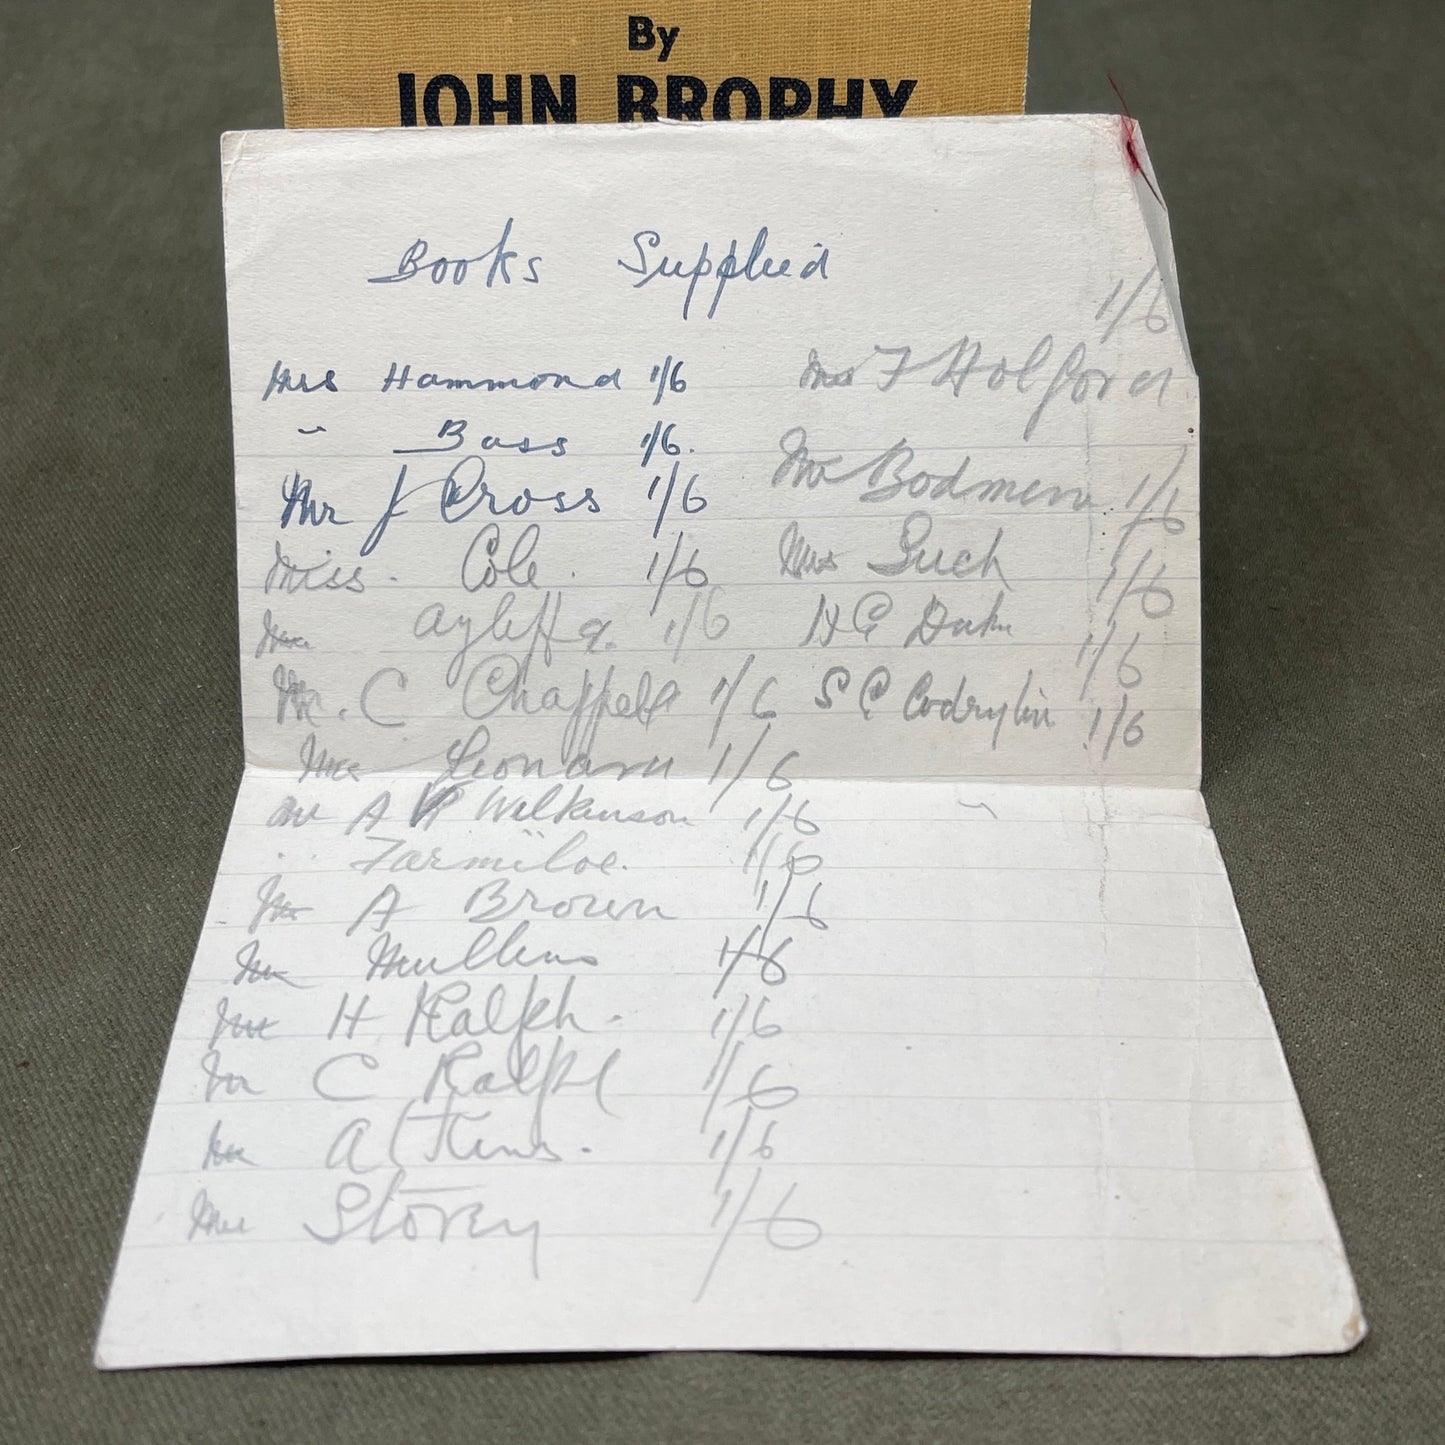 By
JOHN BROPHY
Books Supplied
Mrs Hammond 1/6
" Bass 1/6.
Mr J Cross 1/6
Miss. Cole. 1/6
Ayliffe. 1/6
Mr. C Chappell 1/6
Mrs Leonard 1/6
Mr A Wilkinson 1/6
" Farmiloe. 1/6
Mr A Brown 1/6
Mr Mullens 1/6
Mr H Ralph. 1/6
Mr C Ralph 1/6
Mr Atkins. 1/6
Mrs Storey 1/6
1/6
Mrs F Holford
Mr Bodmen 1/6
Mrs Such 1/6
H G 1/6
S C 1/6